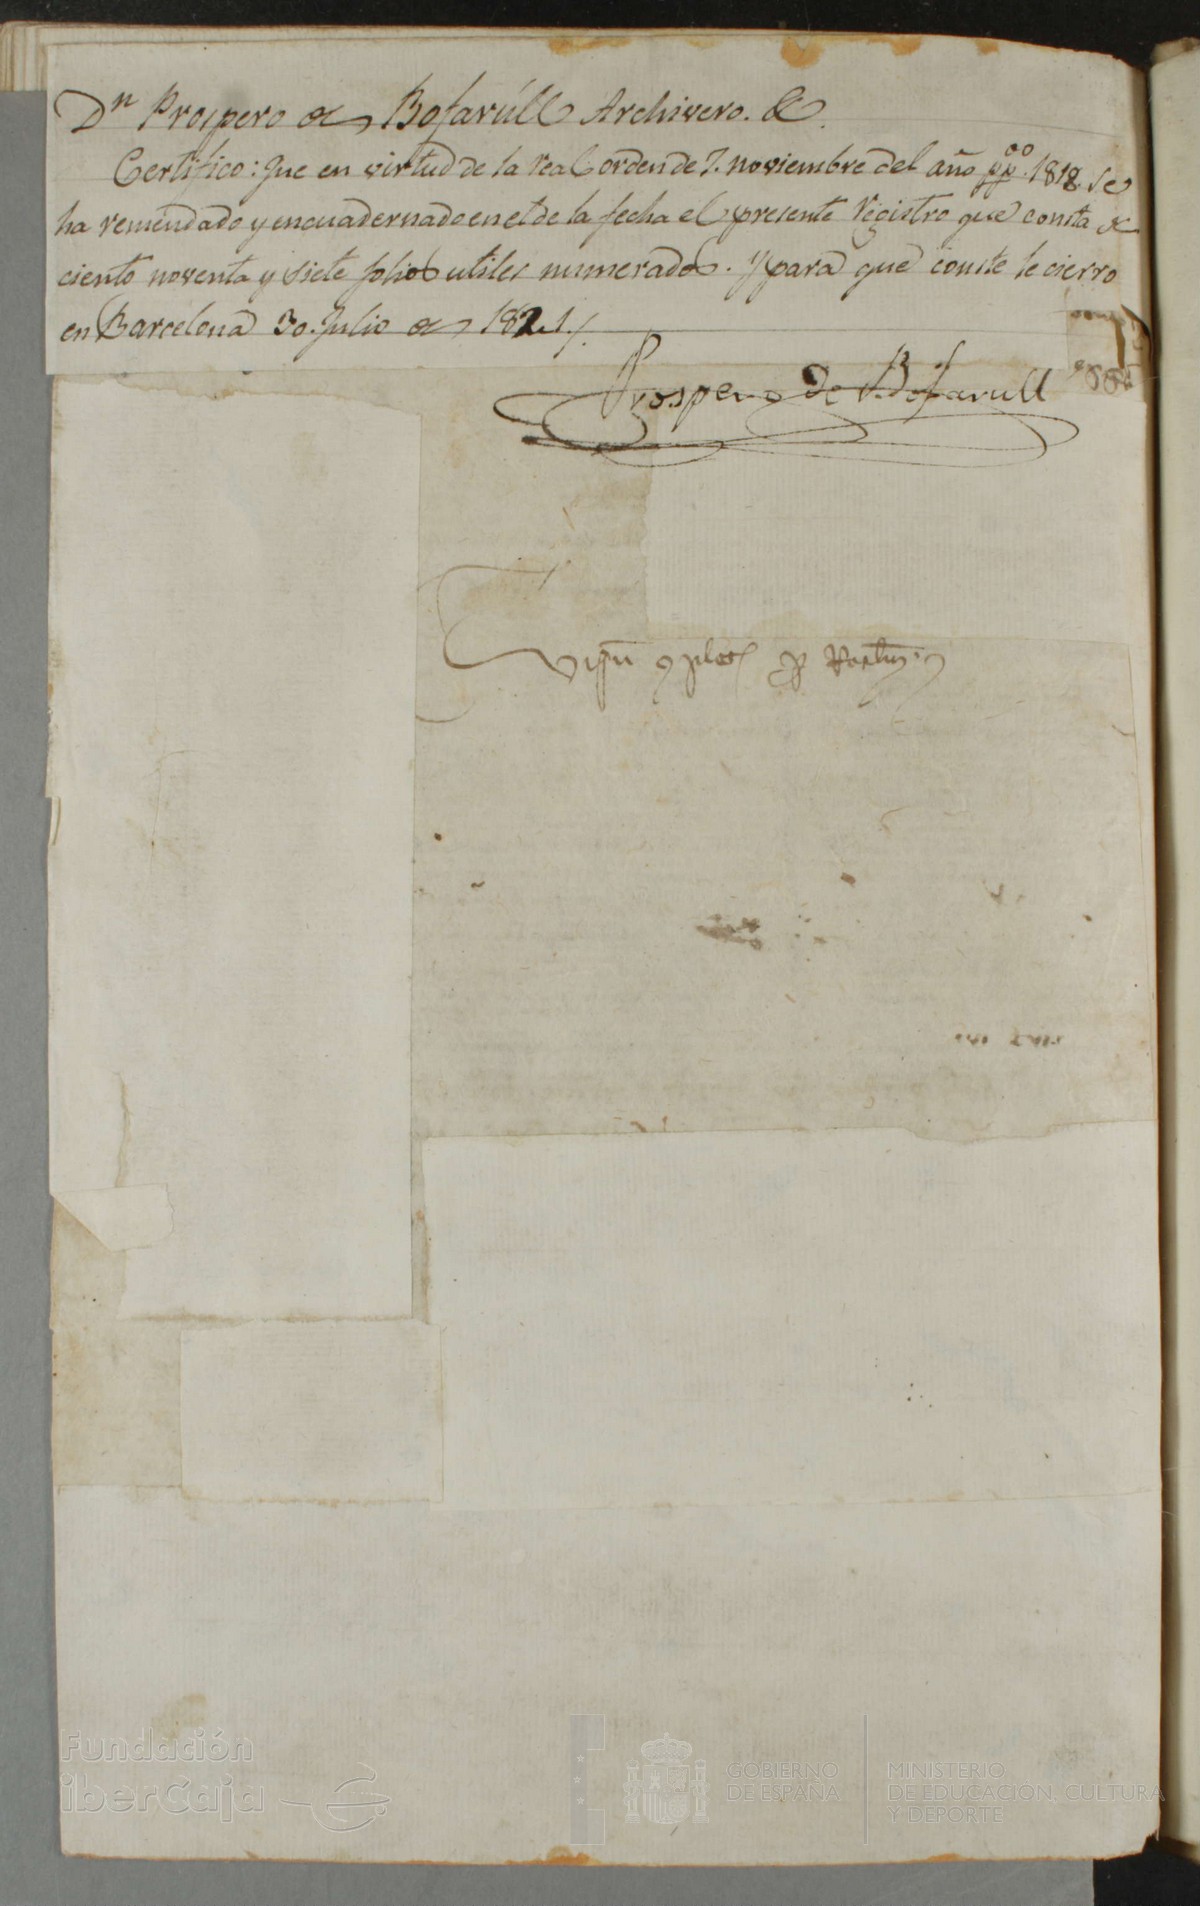 Dn Prospero de Bofarúll Archivero. &.
Certifico: Que en virtud de la real orden de 7. noviembre del año ppoo. 1818. se
ha remendado y encuadernado en el de la fecha el presente registro que consta de
ciento noventa y siete folios utiles numerados. Y para que conste le cierro
en Barcelona 30. Julio de 1821./.
Prospero de Bofarull
Fundación
iberCaja
GOBIERNO
DE ESPAÑA
MINISTERIO
DE EDUCACIÓN, CULTURA
Y DEPORTE